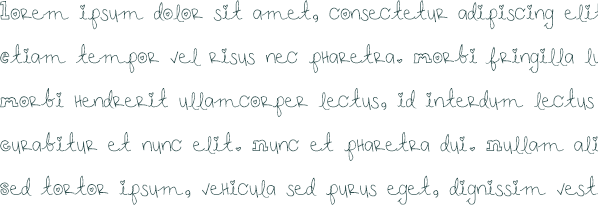 Lorem ipsum dolor sit amet, consectetur adipiscing elit
etiam tempor vel risus nec pharetra. morbi fringilla
morbi hendrerit ullamcorper lectus, id interdum lectus
curabitur et nunc elit. nunc et pharetra dui. nullam ali
sed tortor ipsum, vehicula sed purus eget, dignissim vest